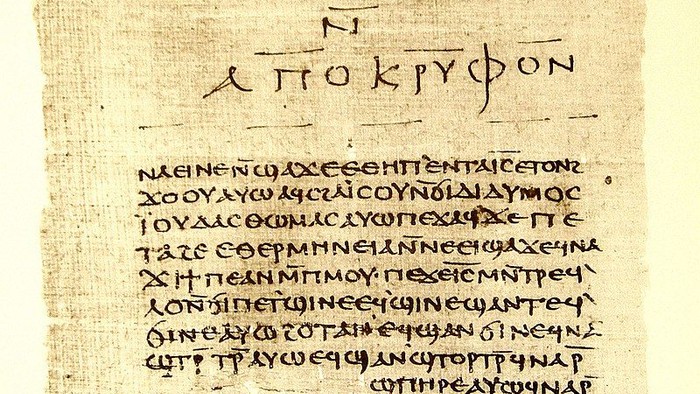 ⲛ̄
ⲁⲡⲟⲕⲣⲩⲫⲟⲛ
ⲛⲁⲉⲓⲛⲉⲛ̄ϣⲁϫⲉⲉⲑⲏⲡʾⲉⲛⲧⲁⲓ̅ⲥ̅ⲉⲧⲟⲛϩ
ϫⲟⲟⲩⲁⲩⲱⲁϥⲥϩⲁⲓ̈ⲥⲟⲩⲛ̄ϭⲓⲇⲓⲇⲩⲙⲟⲥ
ⲓ̈ⲟⲩⲇⲁⲥⲑⲱⲙⲁⲥⲁⲩⲱⲡⲉϫⲁϥϫⲉⲡⲉ
ⲧⲁϩⲉⲉⲑⲉⲣⲙⲏⲛⲉⲓⲁⲛ̄ⲛⲉⲉⲓϣⲁϫⲉϥⲛⲁ
ϫⲓϯⲡⲉⲁⲛⲙ̄ⲡⲙⲟⲩ·ⲡⲉϫⲉⲓ̅ⲥ̅ⲙⲛ̄ⲧⲣⲉϥʾ
ⲗⲟⲛ̄ϭⲓⲡⲉⲧϣⲓⲛⲉⲉϥϣⲓⲛⲉϣⲁⲛⲧⲉϥʾ
ϭⲓⲛⲉⲁⲩⲱϩⲟⲧⲁⲛʾⲉϥϣⲁⲛϭⲓⲛⲉϥⲛⲁ
ϣⲧⲣ̄ⲧⲣ̄ⲁⲩⲱⲉϥϣⲁⲛϣⲧⲟⲣⲧⲣ̄ϥⲛⲁⲣ̄
ϣⲡⲏⲣⲉⲁⲩⲱϥⲛⲁⲣ̄